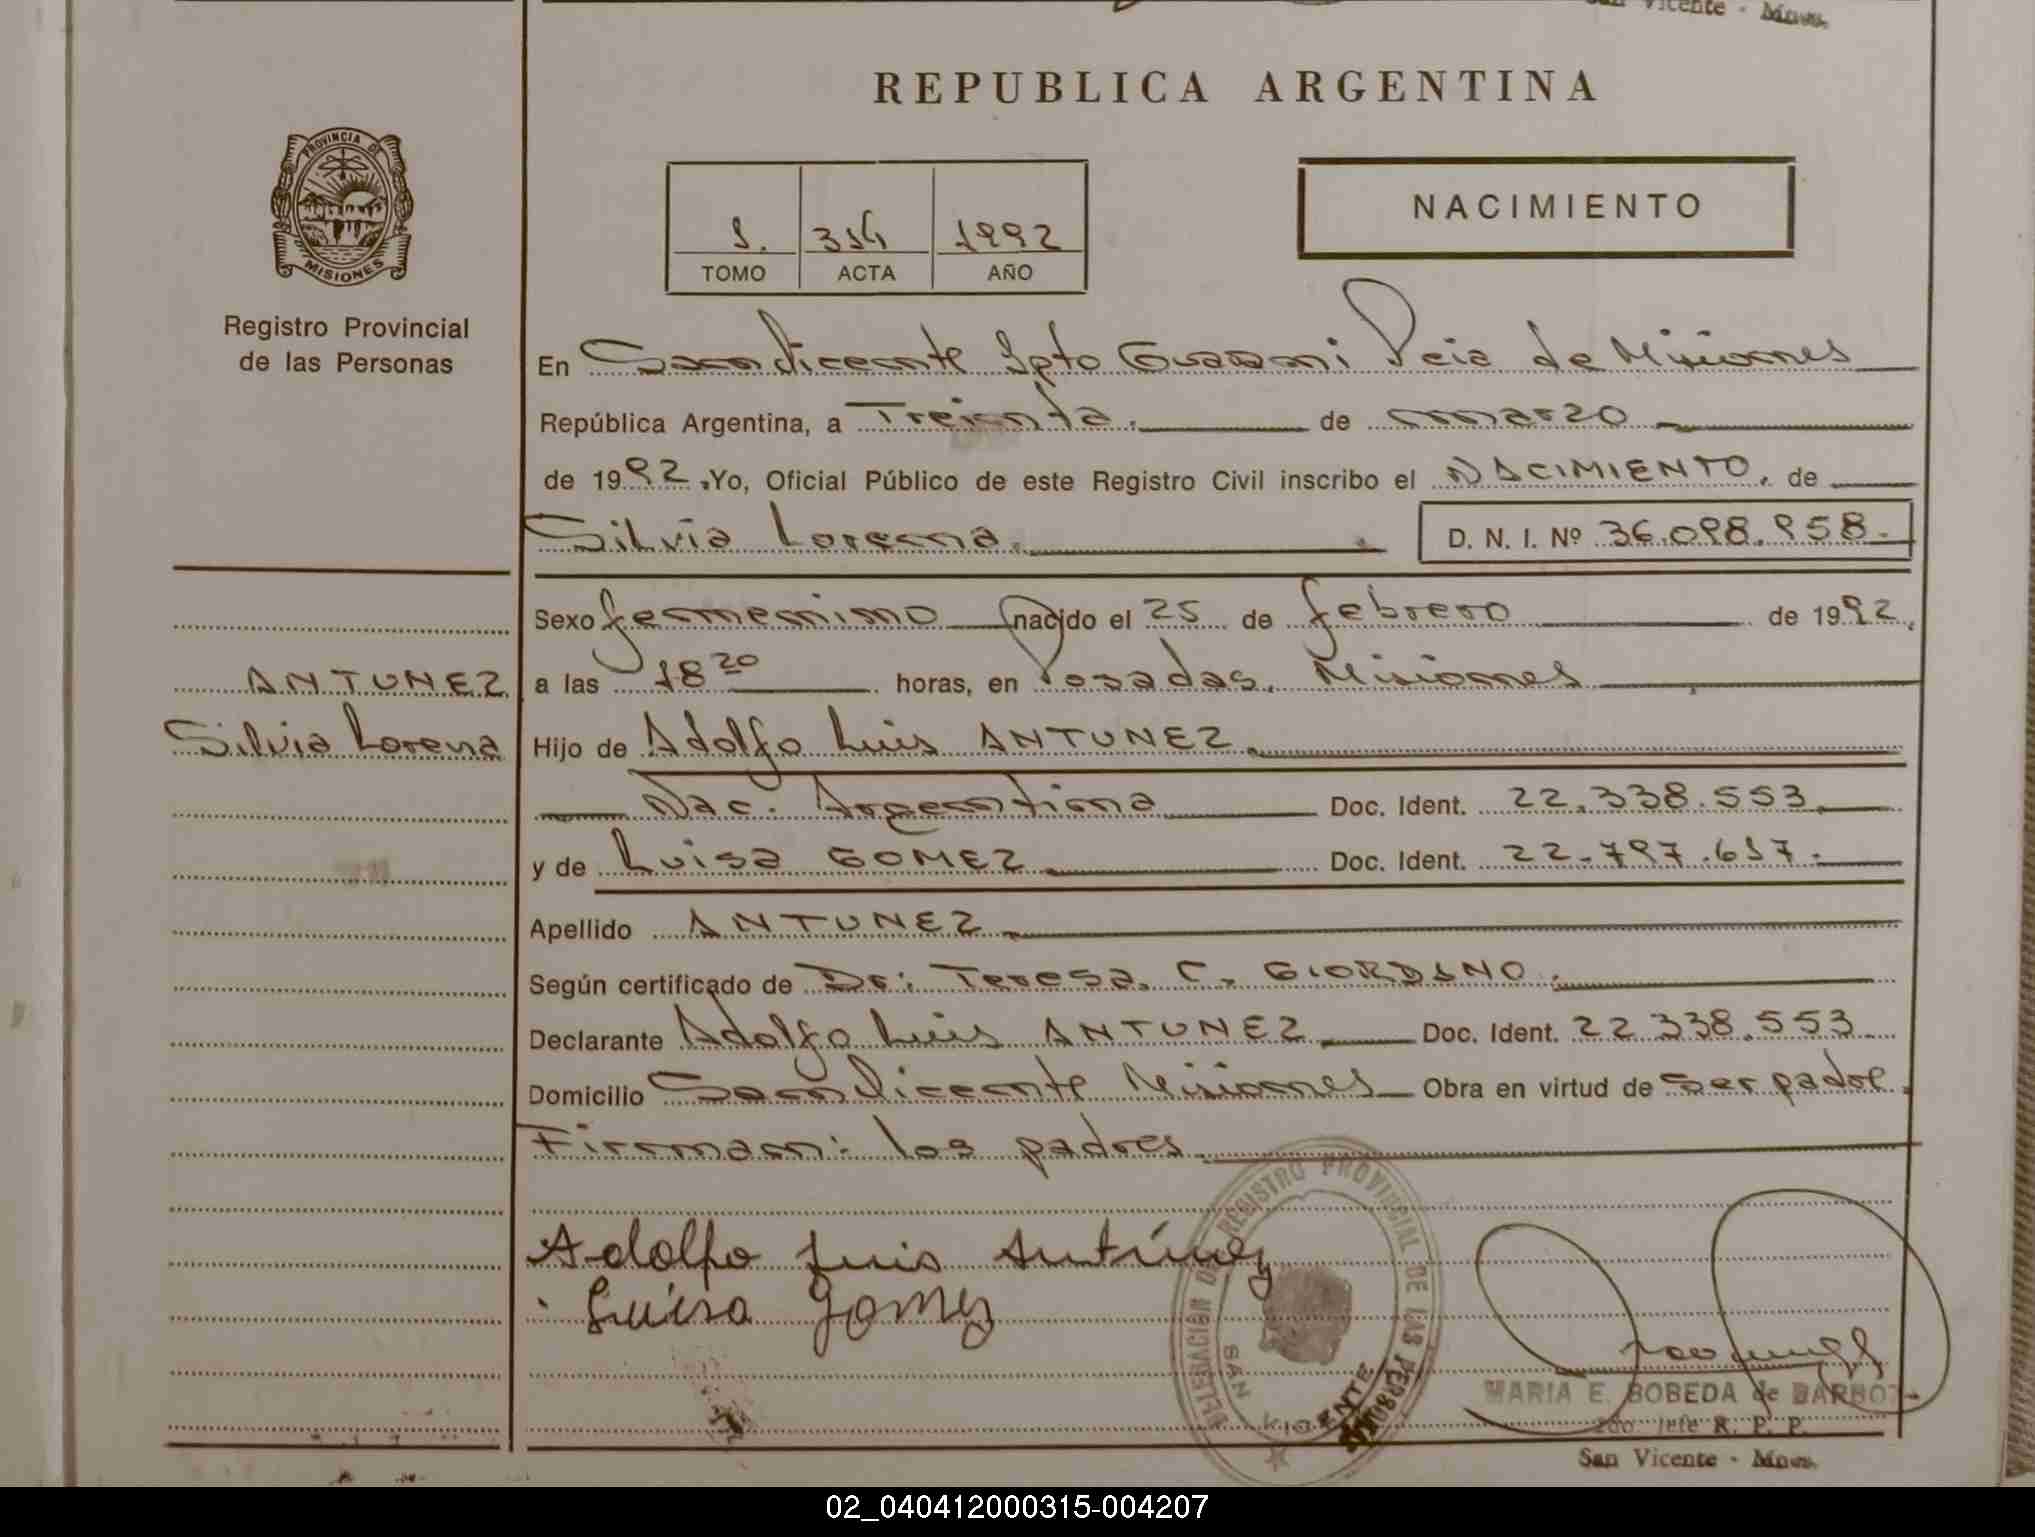 San Vicente - Mnes.
REPUBLICA ARGENTINA
PROVINCIA DE
MISIONES
Registro Provincial
de las Personas
1. 314 1992
TOMO ACTA AÑO
NACIMIENTO
En San Vicente Dpto Guarani Pcia de Misiones
República Argentina, a Treinta. de marzo
de 1992. Yo, Oficial Público de este Registro Civil inscribo el NACIMIENTO, de
Silvia Lorena. D. N. I. Nº 36.098.958.-
Sexo femenino nacido el 25 de febrero de 1992.
ANTUNEZ
Silvia Lorena
a las 18 20 horas, en Posadas, Misiones
Hijo de Adolfo Luis ANTUNEZ
Nac. Argentina Doc. Ident. 22.338.553
y de Luisa GOMEZ Doc. Ident. 22.797.617.
Apellido ANTUNEZ
Según certificado de Dr: Teresa. C. GIORDANO.
Declarante Adolfo Luis ANTUNEZ Doc. Ident. 22.338.553
Domicilio San Vicente Misiones Obra en virtud de ser padre.
Firman: los padres
Adolfo Luis Antúnez
Luisa Gomez
DELEGACIÓN DEL REGISTRO PROVINCIAL DE LAS PERSONAS
SAN VICENTE
MARIA E. BOBEDA de BARBOZ
2do. Jefe R. P. P.
San Vicente - Mnes.
02_040412000315-004207